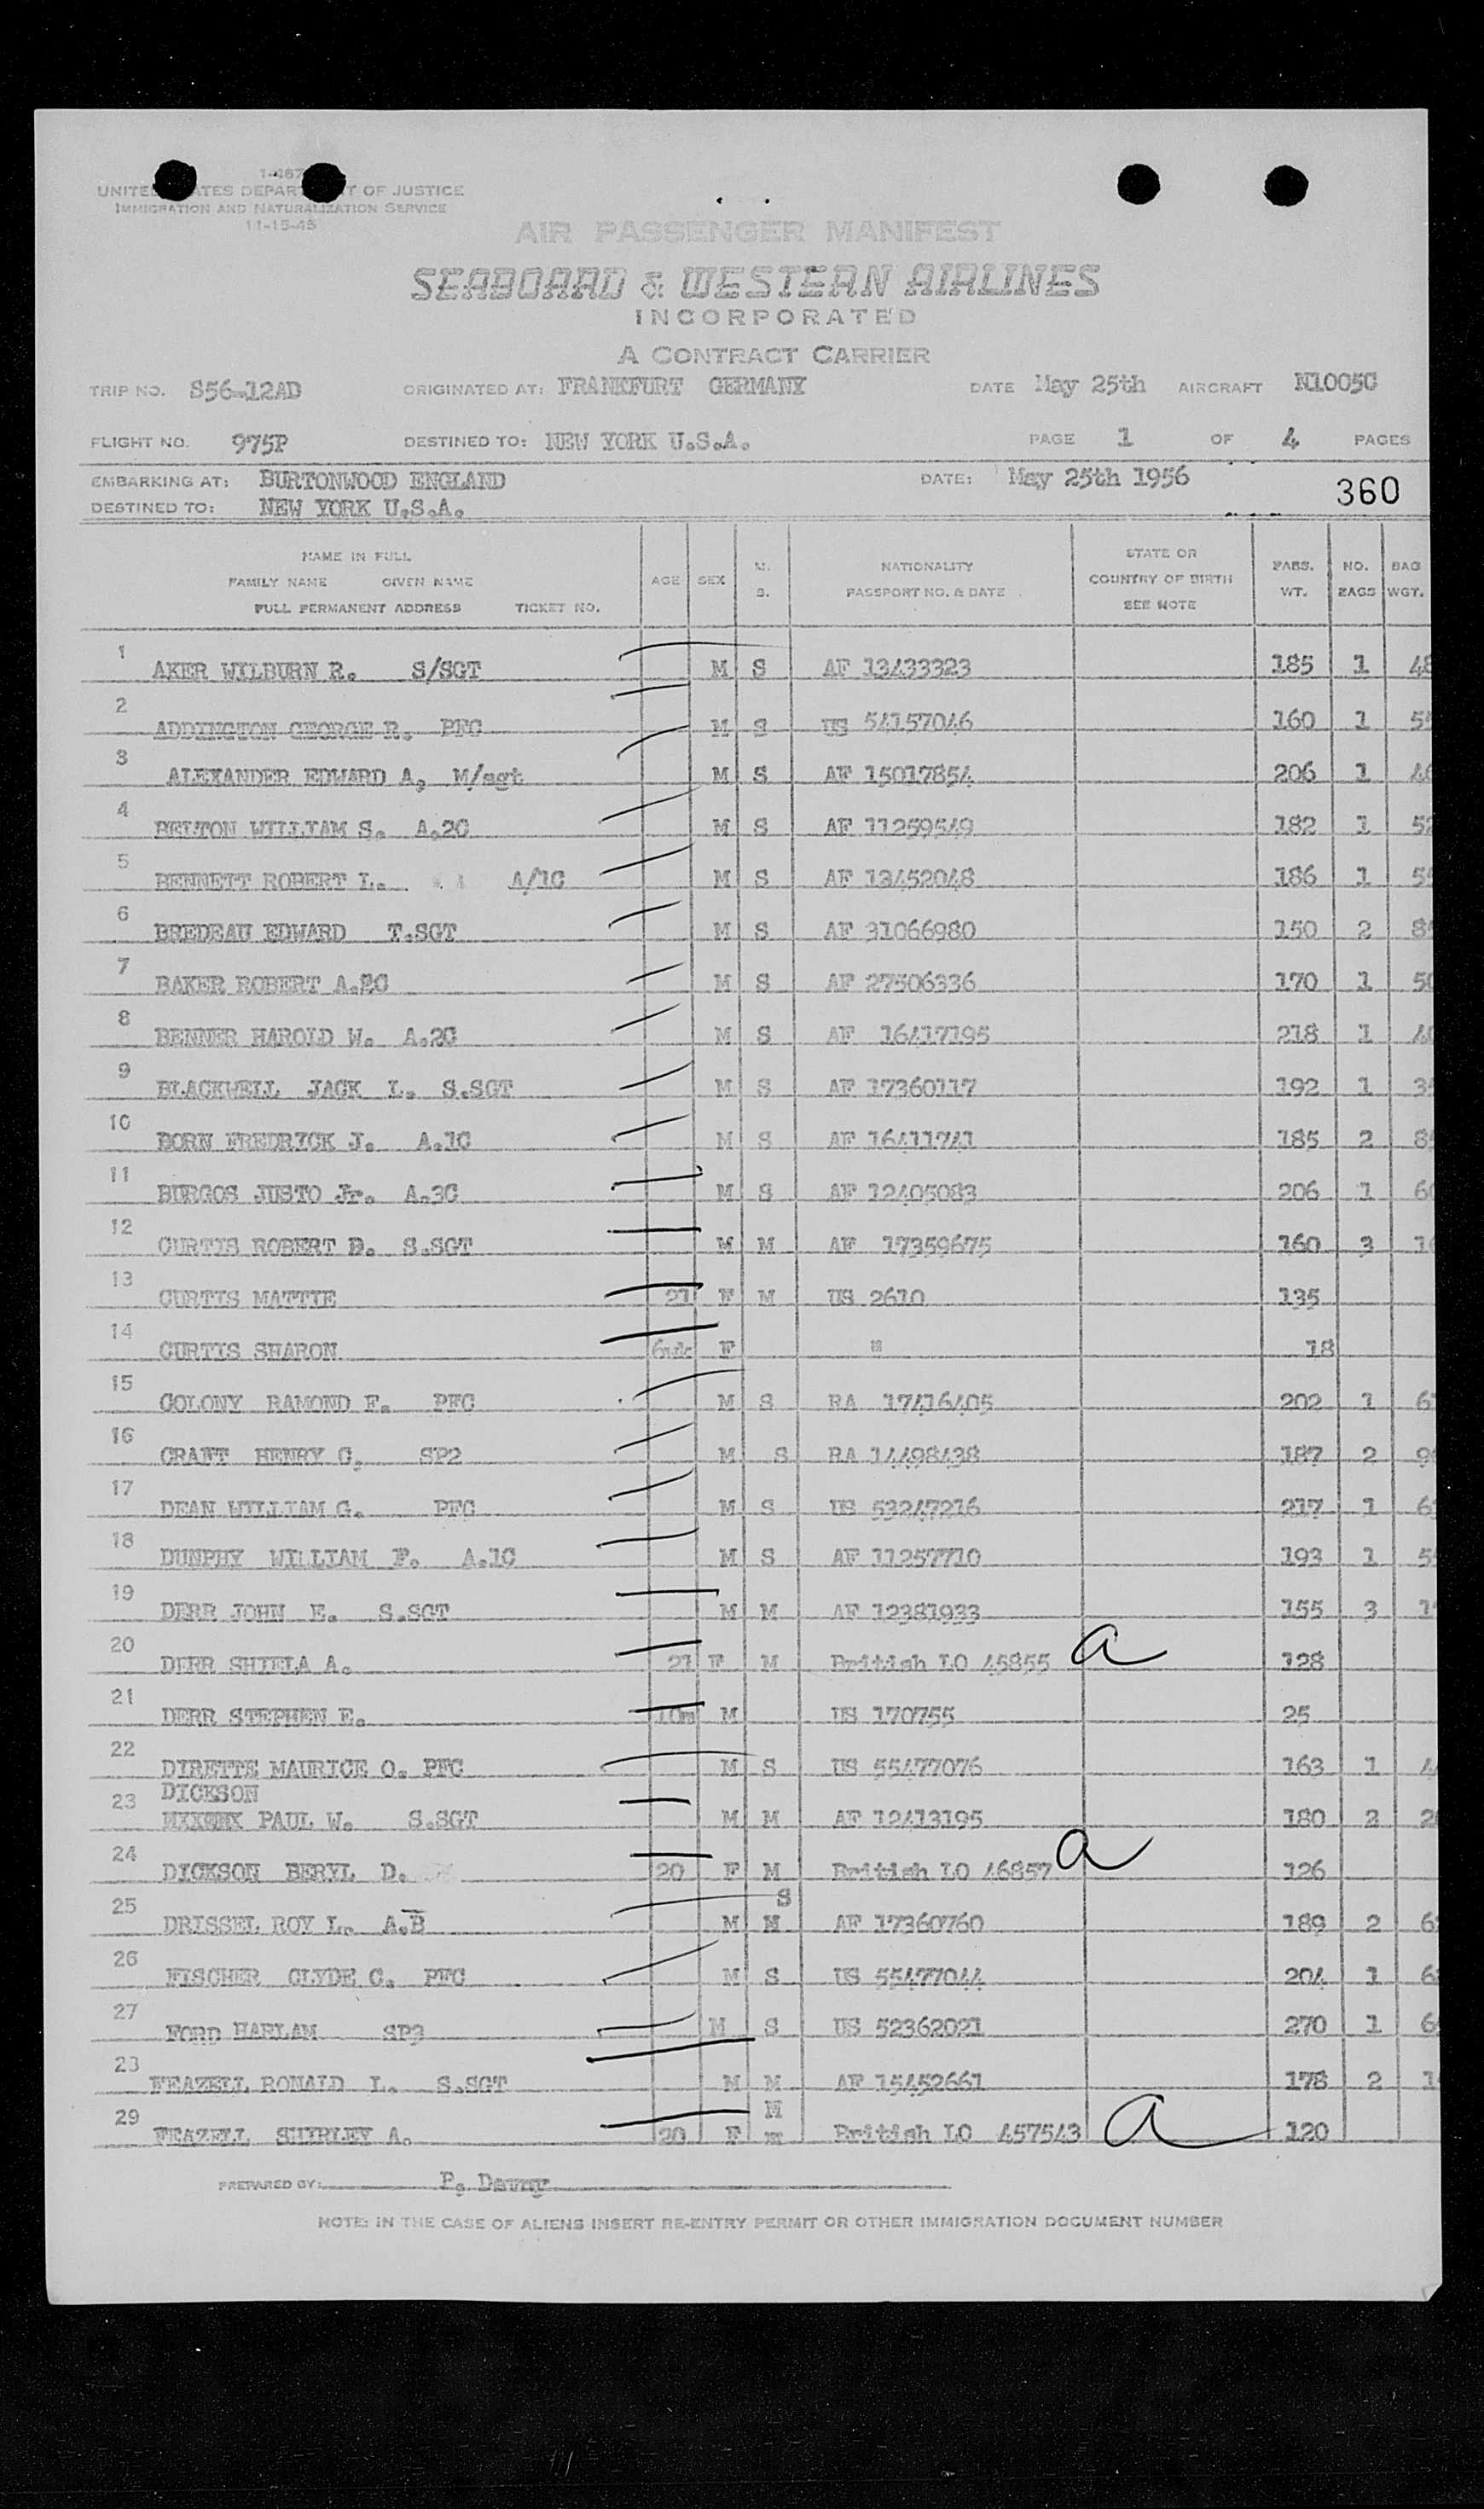 1-467
UNITED STATES DEPARTMENT OF JUSTICE
IMMIGRATION AND NATURALIZATION SERVICE
11-15-48
AIR PASSENGER MANIFEST
SEABOARD & WESTERN AIRLINES
INCORPORATED
A CONTRACT CARRIER
TRIP NO. S56-12AD ORIGINATED AT: FRANKFURT GERMANY DATE May 25th AIRCRAFT N1005C
FLIGHT NO. 975P DESTINED TO: NEW YORK U.S.A. PAGE 1 OF 4 PAGES
EMBARKING AT: BURTONWOOD ENGLAND DATE: May 25th 1956 360
DESTINED TO: NEW YORK U.S.A.
NAME IN FULL
FAMILY NAME GIVEN NAME
FULL PERMANENT ADDRESS TICKET NO.
AGE SEX M. S.
NATIONALITY
PASSPORT NO. & DATE
STATE OR
COUNTRY OF BIRTH
SEE NOTE
PASS. WT. NO. BAGS BAG WGT.
1 AKER WILBURN R. S/SGT M S AF 13433323 185 1 48
2 ADDINGTON GEORGE R. PFC M S US 54157046 160 1
3 ALEXANDER EDWARD A, M/sgt M S AF 15017854 206 1
4 BELTON WILLIAM S. A.2C M S AF 11259549 182 1
5 BENNETT ROBERT L. A/1C M S AF 13452048 186 1
6 BREDEAU EDWARD T.SGT M S AF 31066980 150 2
7 BAKER ROBERT A.2C M S AF 27506336 170 1 50
8 BENNER HAROLD W. A.2C M S AF 16417195 218 1
9 BLACKWELL JACK L. S.SGT M S AF 17360117 192 1
10 BORN FREDRICK J. A.1C M S AF 16411741 185 2
11 BURGOS JUSTO Jr. A.3C M S AF 12405083 206 1
12 CURTIS ROBERT D. S.SGT M M AF 17359675 160 3
13 CURTIS MATTIE 21 F M US 2610 135
14 CURTIS SHARON F " 18
15 COLONY RAMOND F. PFC M S RA 17416405 202 1
16 CRAFT HENRY C. SP2 M S RA 14498438 187 2
17 DEAN WILLIAM G. PFC M S US 53247216 217 1
18 DUNPHY WILLIAM F. A.1C M S AF 11257710 193 1
19 DERR JOHN E. S.SGT M M AF 12381933 155 3
20 DERR SHIELA A. 21 F M British LO 45855 a 128
21 DERR STEPHEN E. 10m M US 170755 25
22 DIRETTE MAURICE O. PFC M S US 55477076 163 1
DICKSON
23 PAUL W. S.SGT M M AF 12413195 180 2
24 DICKSON BERYL D. 20 F M British LO 46857 a 126
S
25 DRISSEL ROY L. A.B M M AF 17360760 189 2
26 FISCHER CLYDE C. PFC M S US 55477044 204 1
27 FORD HARLAM SP3 M S US 52362021 270 1
28 FEAZELL RONALD L. S.SGT M M AF 15452661 178 2
M
29 FEAZELL SHIRLEY A. 20 F British LO 457543 a 120
PREPARED BY: P. Davny
NOTE: IN THE CASE OF ALIENS INSERT RE-ENTRY PERMIT OR OTHER IMMIGRATION DOCUMENT NUMBER